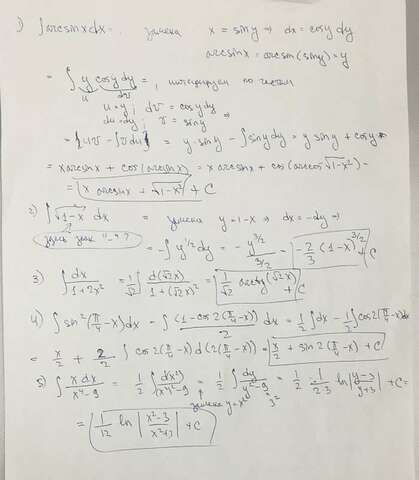 1) ∫ arcsinx dx = замена x = siny ⇒ dx = cosy dy
arcsinx = arcsin(siny) = y
= ∫ y cosy dy = , интегрируем по частям
u dv
u = y; dv = cosy dy
du = dy; v = siny ⇒
= uv - ∫vdu = y·siny - ∫siny dy = y siny + cosy =
= x arcsinx + cos(arcsinx) = x arcsinx + cos(arccos√1-x²) =
= x arcsinx + √1-x² + C
2) ∫√1-x dx = замена y = 1-x ⇒ dx = -dy ⇒
здесь знак "-"?
= -∫ y^{1/2} dy = - y^{3/2} / 3/2 = - 2/3 (1-x)^{3/2} + C
3) ∫ dx / 1+2x² = 1/√2 ∫ d(√2x) / 1+(√2x)² = 1/√2 arctg(√2x) + C
4) ∫ sin²(π/4-x)dx = ∫ (1-cos2(π/4-x)) / 2 dx = 1/2 ∫dx - 1/2 ∫cos2(π/4-x)
= x/2 + ∫ cos2(π/4-x) d(2(π/4-x)) = x/2 + sin2(π/4-x) + C
5) ∫ x dx / x⁴-9 = 1/2 ∫ d(x²) / x⁴-9 = 1/2 ∫ dy / y²-9 = 1/2 · 1/2·3 ln|y-3 / y+3| + C =
замена y=x² 3²
= 1/12 ln |x²-3 / x²+3| + C